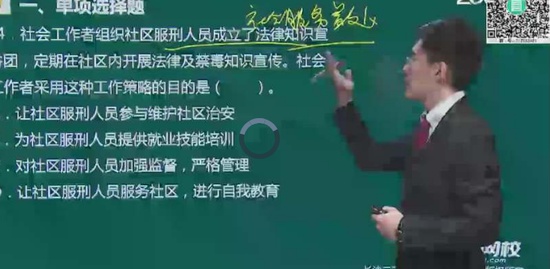 一、单项选择题
社区服务
4．社会工作者组织社区服刑人员成立了法律知识宣
传团，定期在社区内开展法律及禁毒知识宣传。社会
工作者采用这种工作策略的目的是（　　）。
．让社区服刑人员参与维护社区治安
．为社区服刑人员提供就业技能培训
．对社区服刑人员加强监督，严格管理
．让社区服刑人员服务社区，进行自我教育
网校